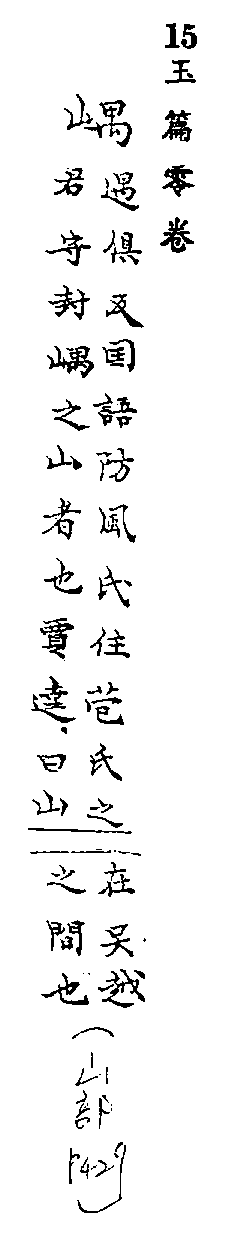 15
玉篇零卷
嵎
遇俱反囯語防風氏住芒氏之
君守封嵎之山者也賈逵曰山
在吴越
之間也
(山部 P429)